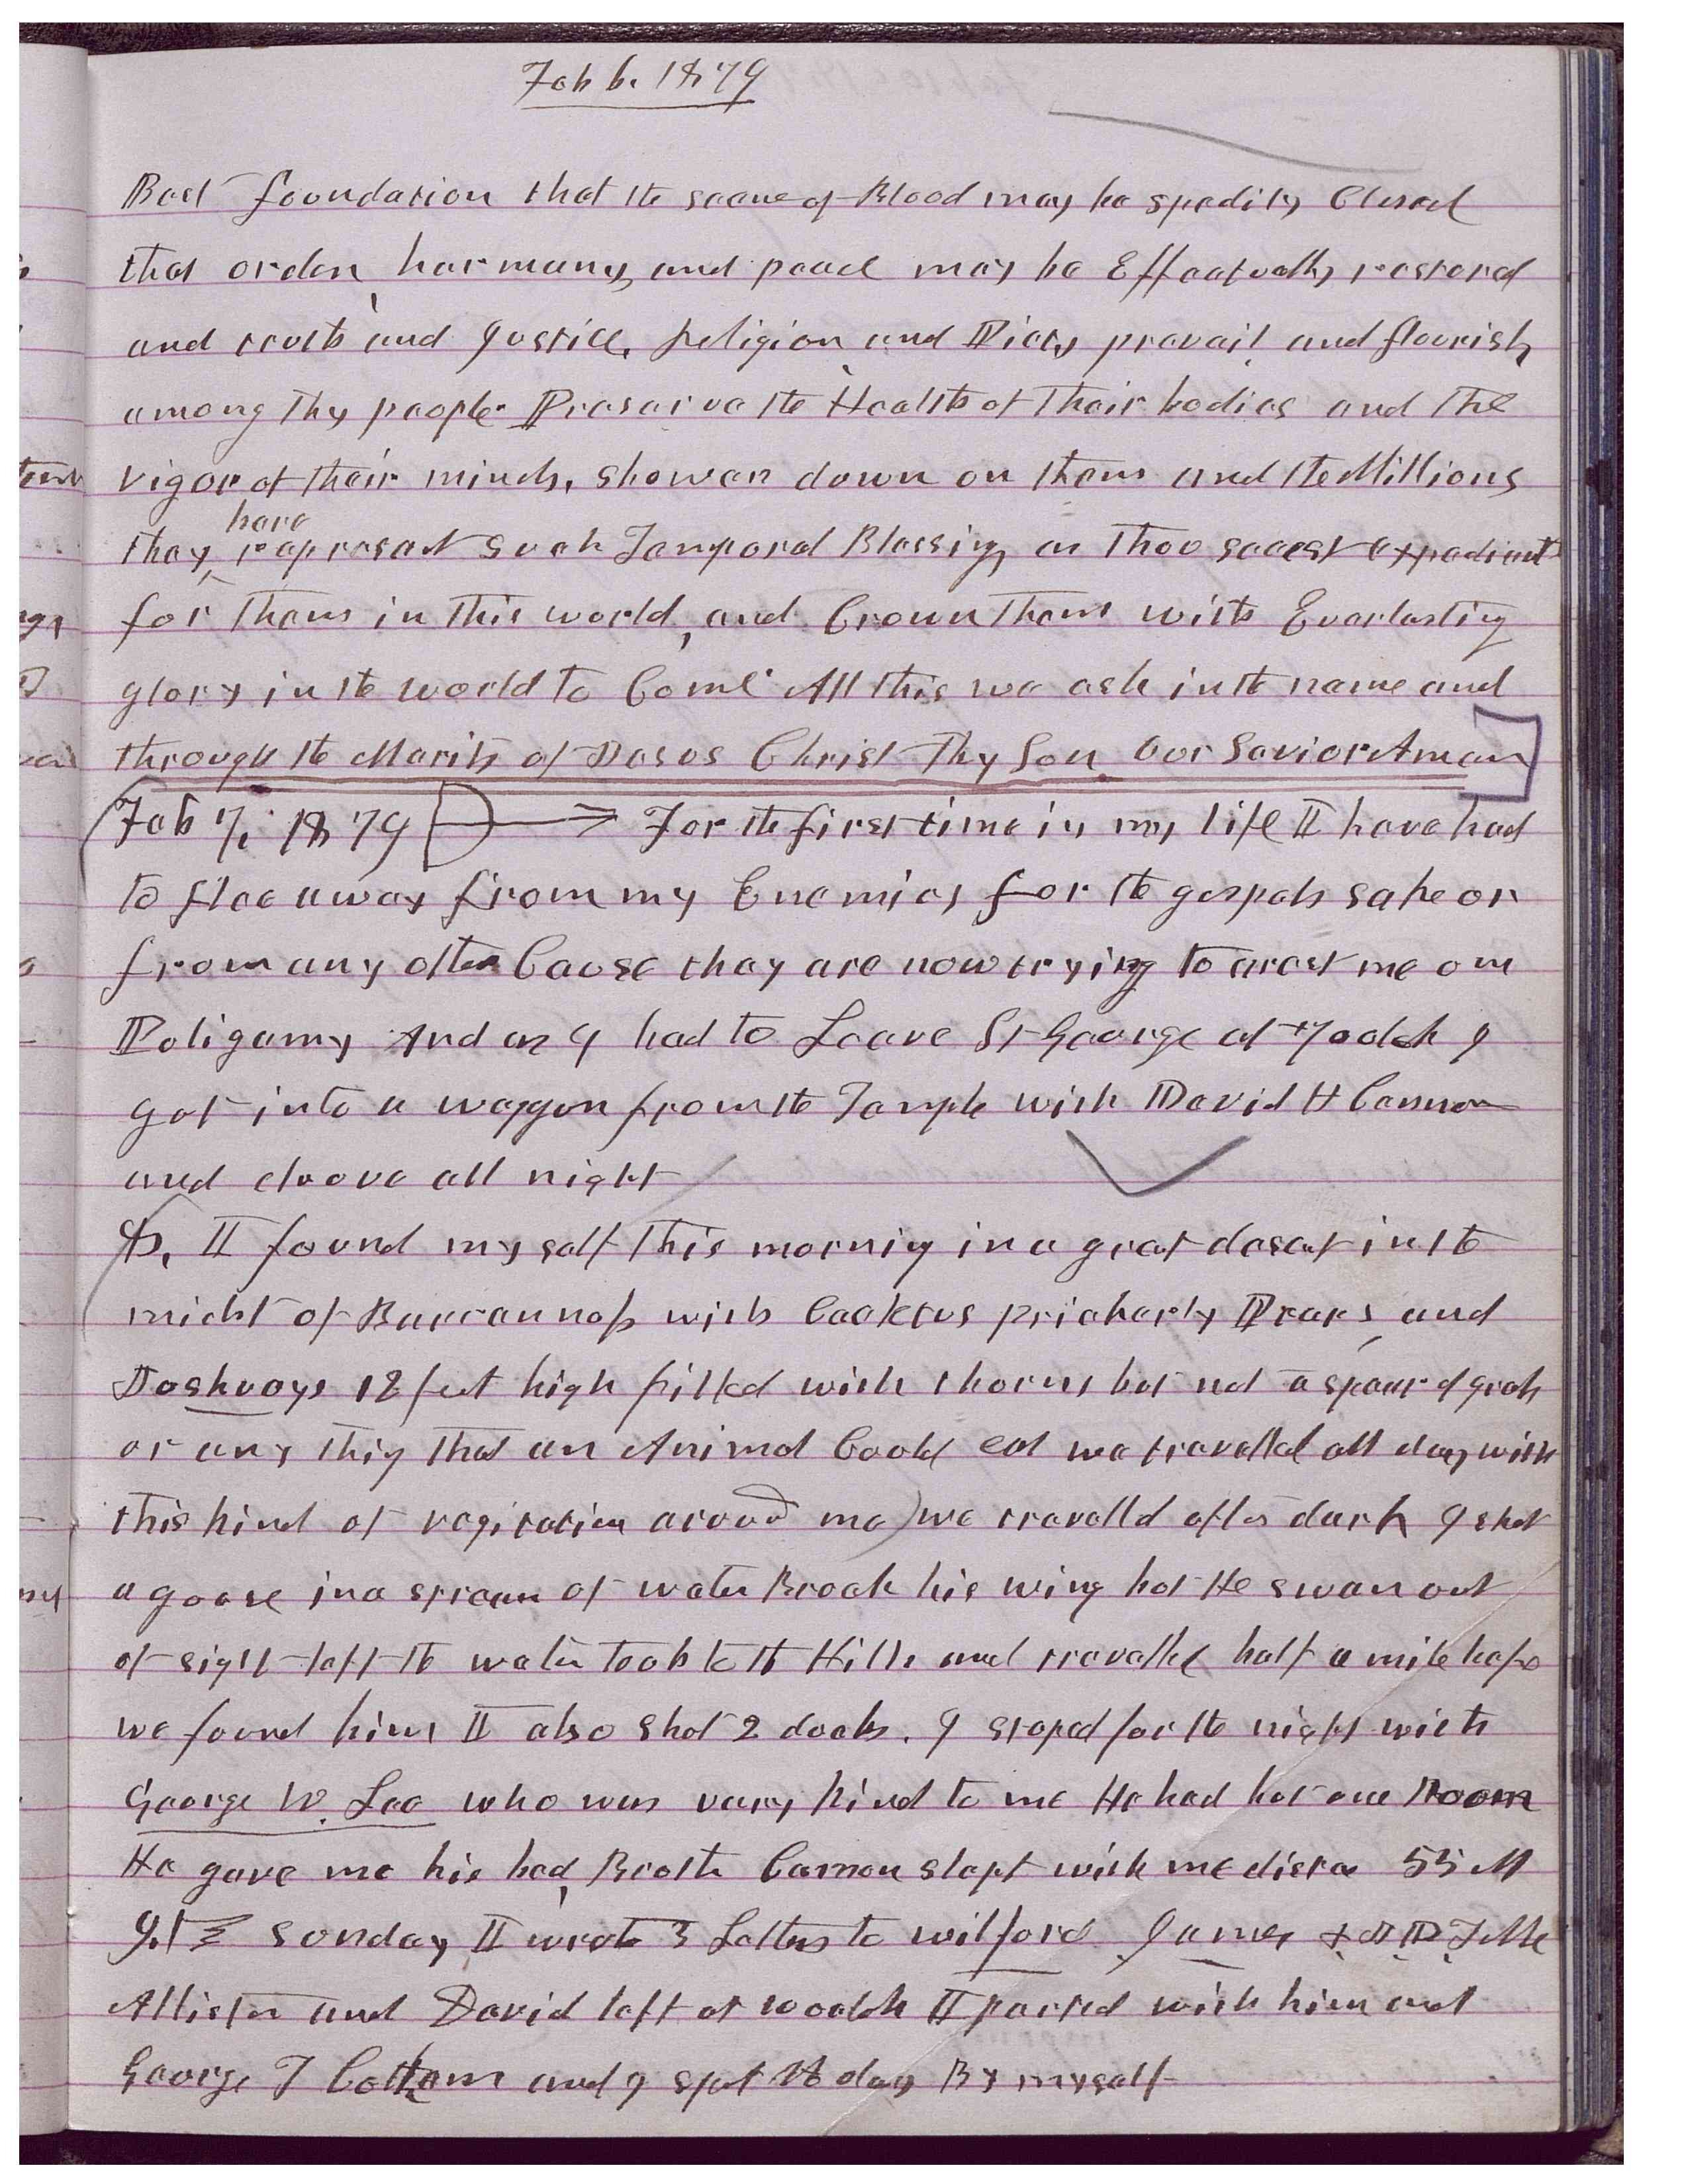 Feb 6. 1879
Best foundation that the scene of Blood may be spedily Closed
that order, harmony, and peace may be Effectually restored
and truth and Justice, Religion and Piety prevail and flourish
among Thy people. Preserve the Health of Their bodies and the
vigor of their minds, shower down on them and the Millions
they here represent Such Temporal Blessing as Thou seeest expedient
for Them in This world, and Crown Them with Everlasting
glory in the world to Come All this we ask in the name and
through the Merits of Jesus Christ Thy Son Our Savior Amen
Feb 7, 1879 For the first time in my life I have had
to flee away from my Enemies for the gospels sake or
from any other Cause they are now trying to arest me on
Poligamy And as I had to Leave St George at 7 oclok I
got into a waggon from the Temple with David H Cannon
and droove all night
8, I found myself This morning in a great desert in the
midst of with Cacktus prickerly Pears, and
Joshuays 12 feet high filled with thorns but not a spear of grass
or any thing That an Animal Could eat we travelled all day with
this kind of vegitation around me we travelled after dark I shot
a goose in a stream of water Broak his wing but He swam out
of sight left the water took to the Hills and travelled half a mile before
we found him I also shot 2 ducks. I stoped for the night with
George W. Lee who was very kind to me He had but one Room
He gave me his bed, Brother Cannon slept with me distan 55 M
9. Sunday I wrote 3 Letters to Wilford James & J D T Mc
Allister and David left at I parted with him and
George T Cottam and I spent the day By myself